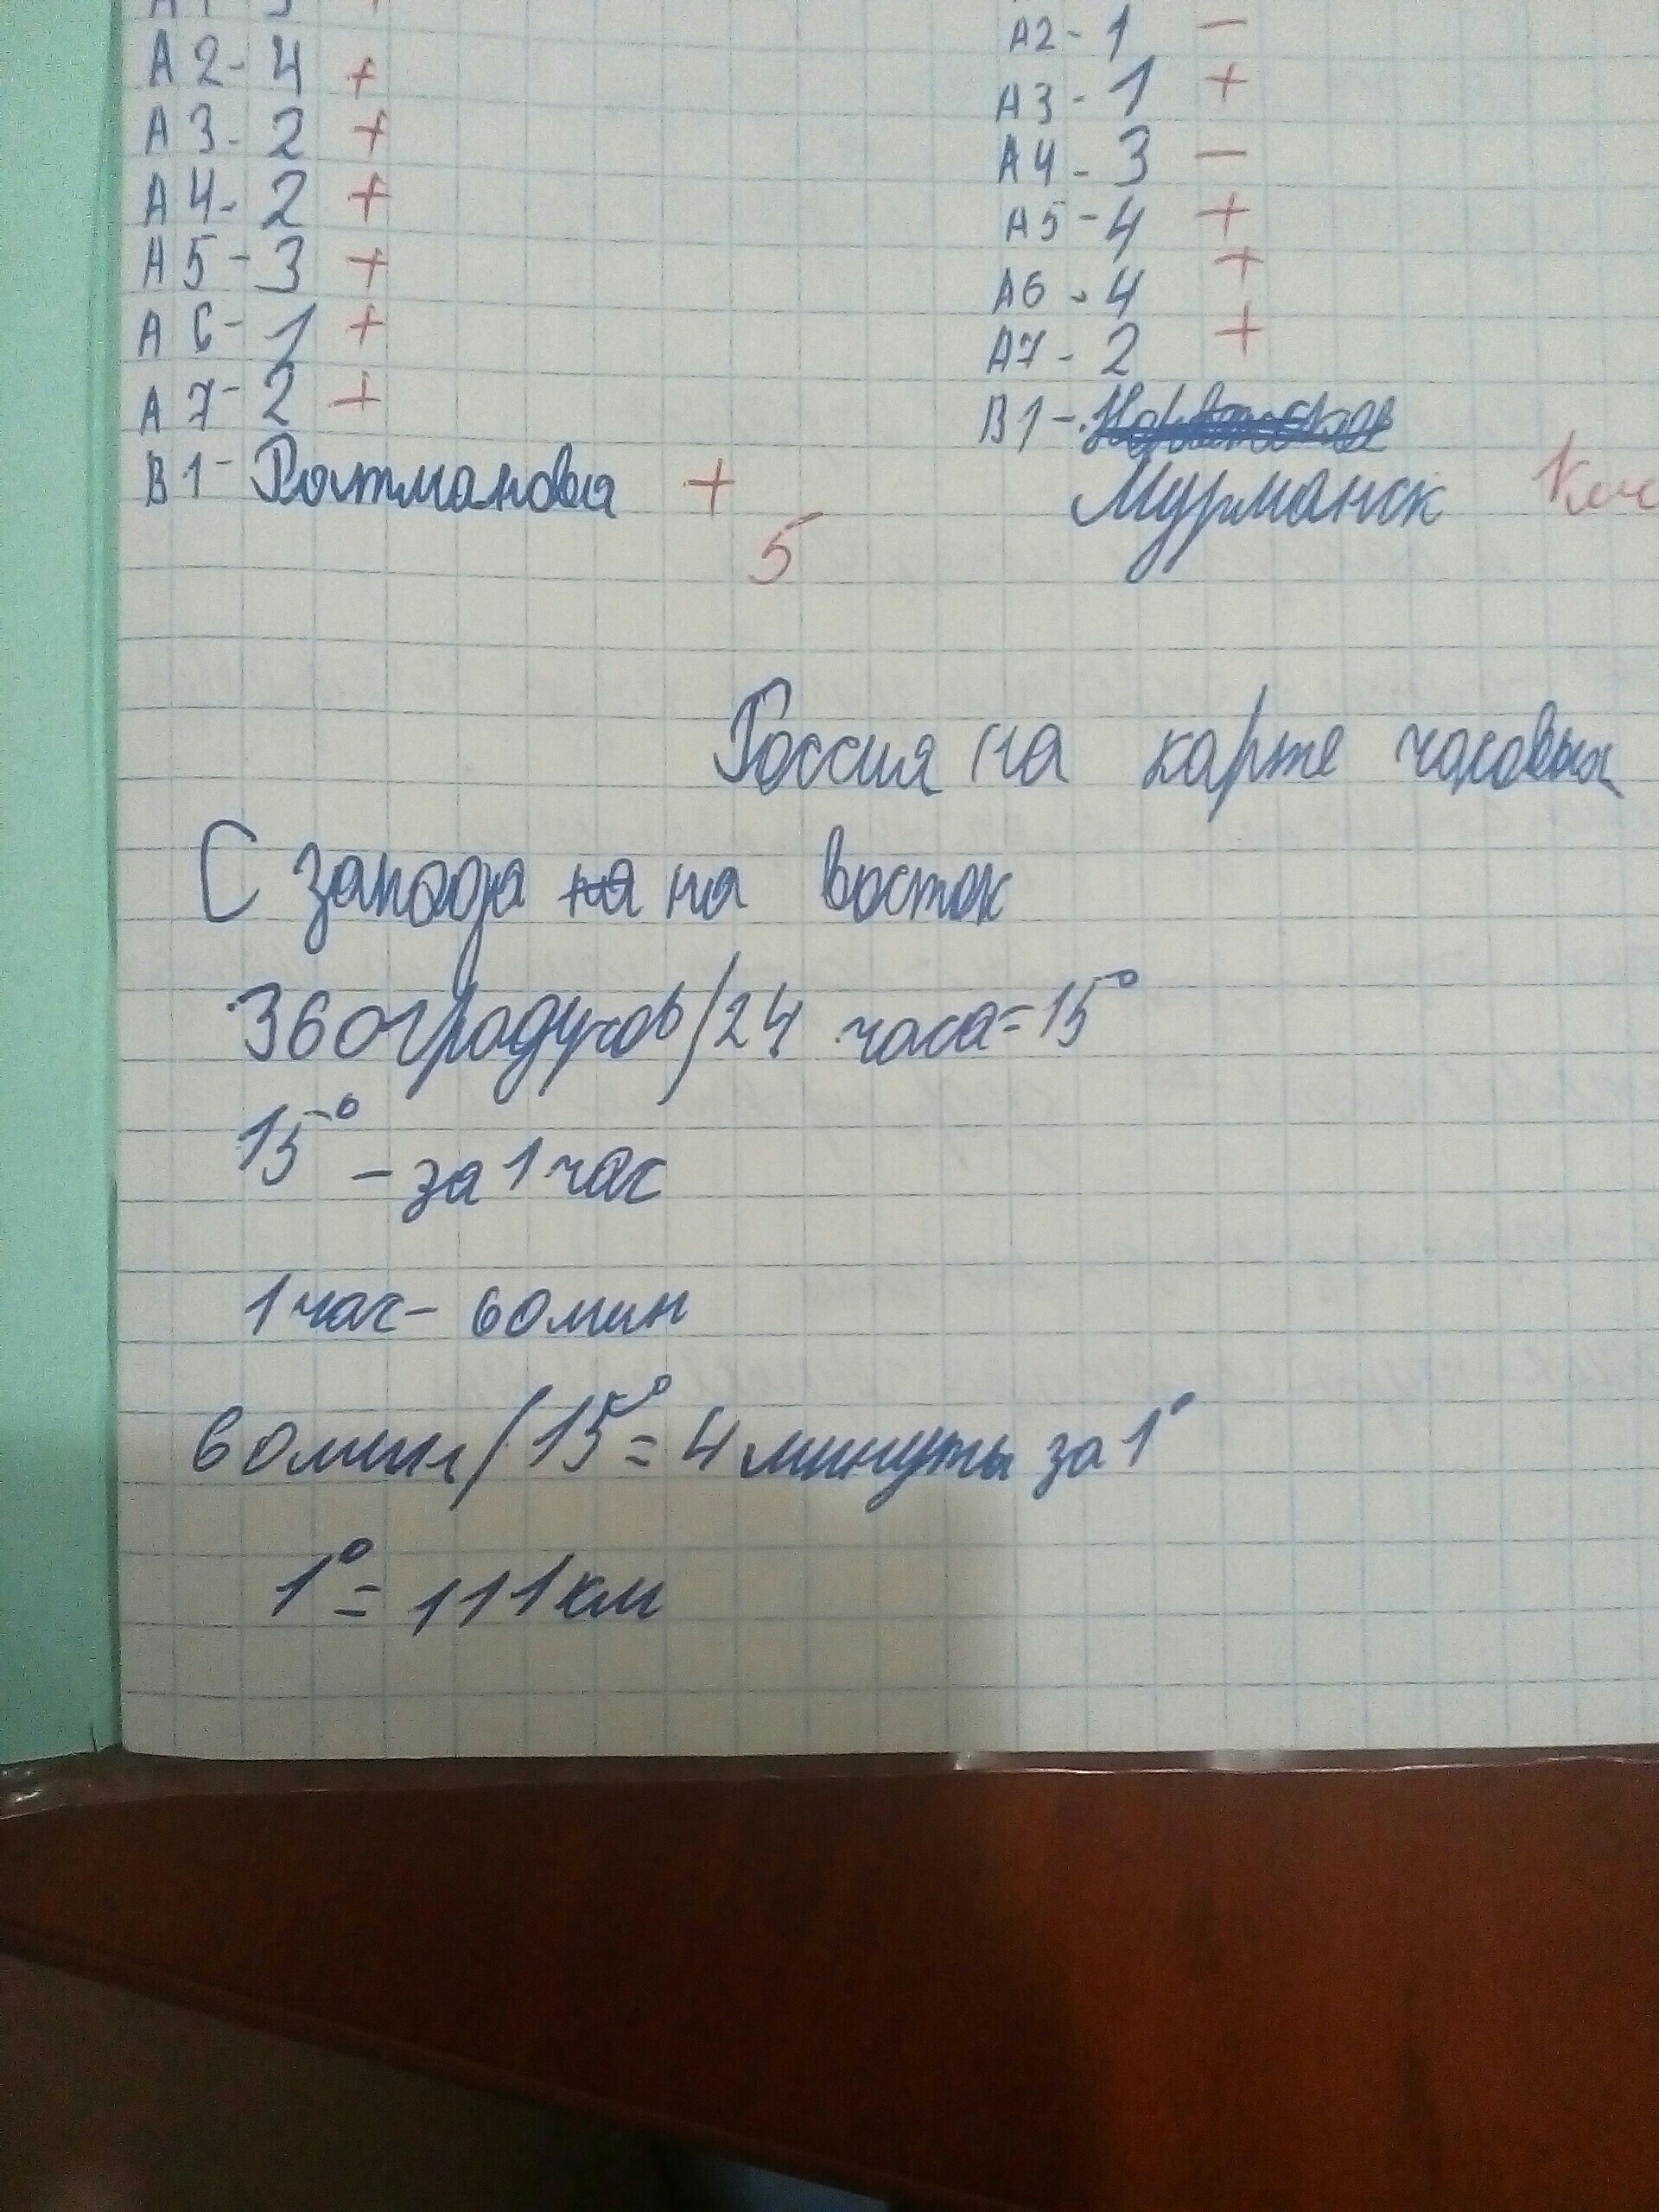 А2- 4 +
А3- 2 +
А4- 2 +
А5- 3 +
А6- 1 +
А7- 2 +
В1- Ротманова +
5
А2- 1 -
А3- 1 +
А4- 3 -
А5- 4 +
А6- 4 +
А7- 2 +
В1-
Мурманск
Россия на карте часовых
С запада на на восток
360градусов/24 часа=15°
15° - за 1 час
1 час- 60мин
60мин/15°= 4 минуты за 1°
1°= 111км